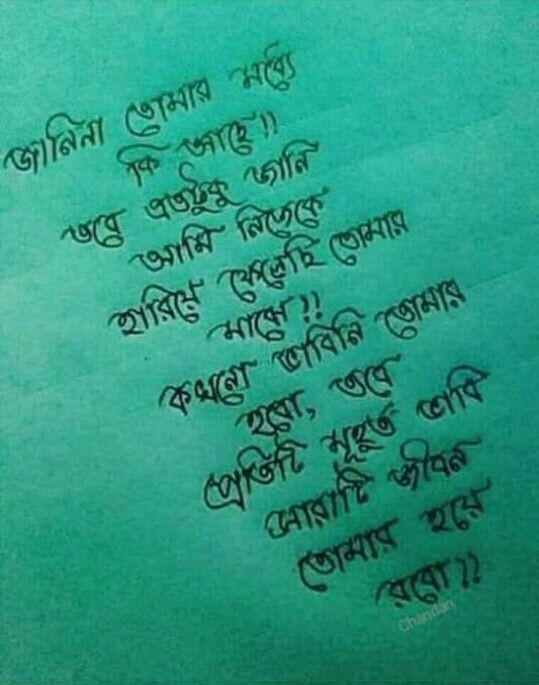 জানিনা তোমার মধ্যে
কি আছে!!
তবে এতটুকু জানি
আমি নিজেকে
হারিয়ে ফেলেছি তোমার
মাঝে!!
কখনো ভাবিনি তোমার
হবো, তবে
প্রতিটি মূহুর্ত ভাবি
সারাটি জীবন
তোমার হয়ে
রবো!!
Chandan